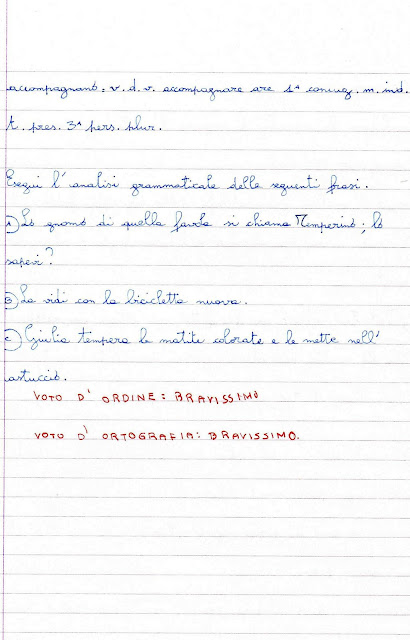 accompagnano: v. d. v. accompagnare are 1ª coniug. m. ind.
t. pres. 3ª pers. plur.
Esegui l'analisi grammaticale delle seguenti frasi.
A Lo gnomo di quella favola si chiama Temperino; lo
sapevi?
B La vidi con la bicicletta nuova.
C Giulia tempera le matite colorate e le mette nell'
astuccio.
VOTO D' ORDINE: BRAVISSIMO
VOTO D' ORTOGRAFIA: BRAVISSIMO.